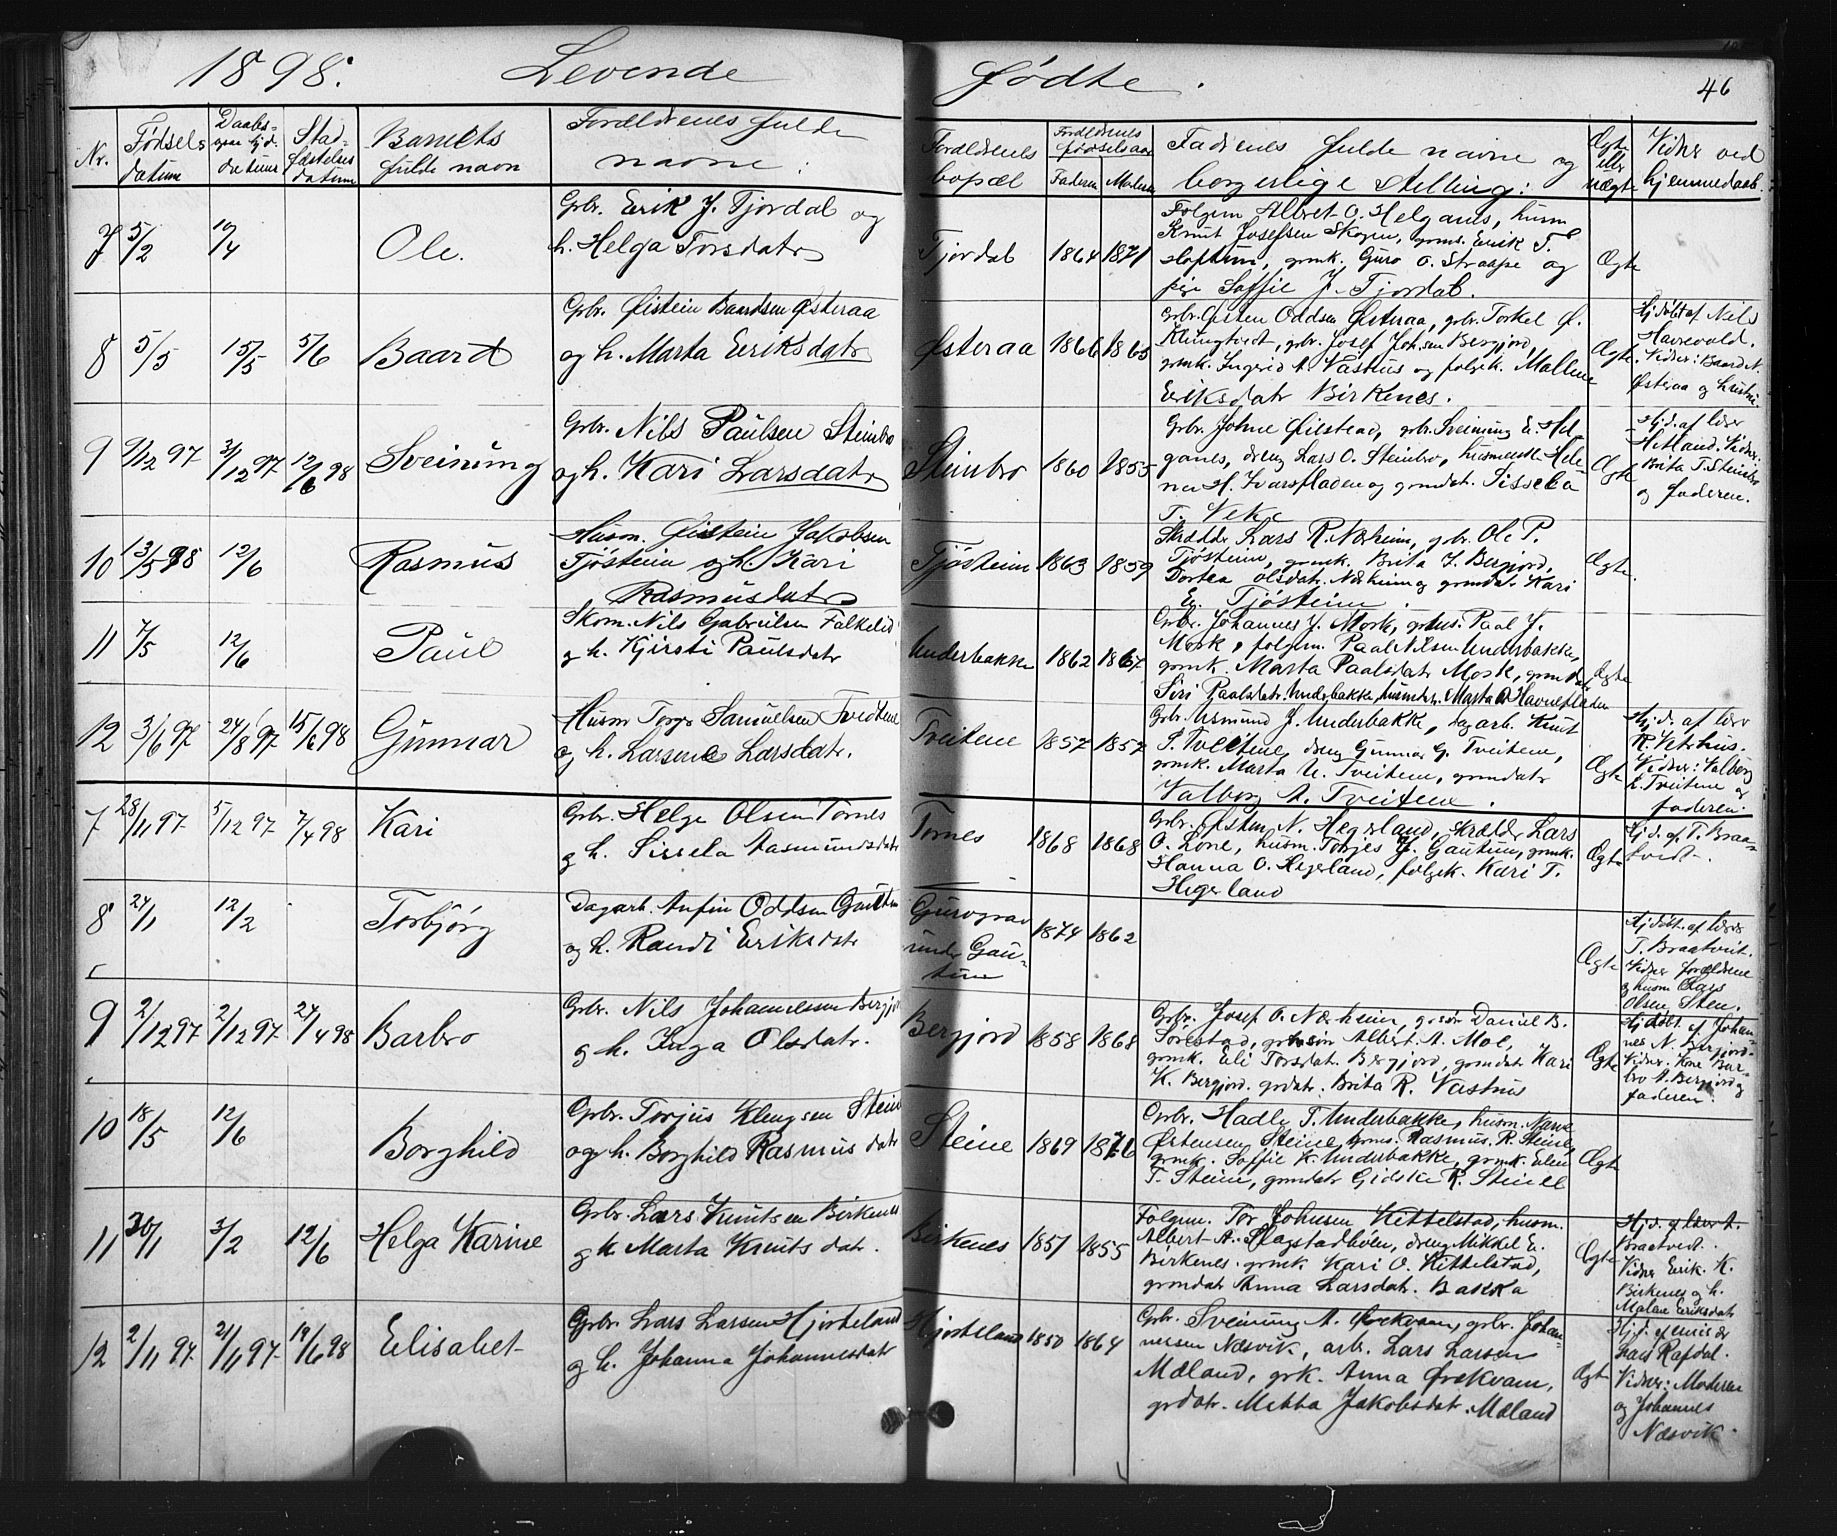 1898. Levende fødte. 46
Nr. Fødsels datum Daabs- datum Stad- fæstelses datum Barnets fulde navn Forældrenes fulde navne: Forældrenes bopæl Forældrenes fødselsaar Faderen Moderen Fadrenes fulde navne og borgerlige stilling: Ægte eller uægte Vidner ved hjemmedaab.
7 5/2 10/4 Ole.
Gbr. Erik J. Tjordal og
h. Helga Torsdatr
Tjordal 1864 1871
Folgem Albret O. Helganes, husm
Knut Josefsen Skogen, grms. Erik T.
guro O. Straape og
pige Soffie J. Tjordal.
Ægte
8 5/5 15/5 5/6 Baard
Gbr. Øistein Baardsen Østeraa
og h. Marta Eriksdatr
Østeraa 1866 1865
Gbr. Østen Oddsen Østeraa, gbr. Torkel Ø.
Klungtvedt, gbr. Josef Johsen Bergjord,
gmk. Ingerid A. Vastnus og folgk. Mallene
Eriksdatr Birkenes.
Ægte.
Hj.døbt af Nils
Havrevold.
Vidner: Baard N.
Østeraa og
9 9/12 97 3/12 97 12/6 98 Sveinung
Gbr. Nils Paulsen Steinbro
og h. Kari Larsdatr
Steinbro 1860 1855
Gbr. Johne Øilstead, gbr. Sveinung E. Hel-
ganes, dreng Lars O. Steinbro, Hele-
ne H. Ivarsfladen og grmdat. Sissela
T. Veka
Ægte
Hj.d. af lærer
Hetland. Vidner:
Brita T. Steinbro
og faderen.
10 13/5 98 12/6 Rasmus
Husm. Øistein Jakobsen
Tjøsteim og h. Kari
Rasmusdatr
Tjøsteim 1863 1859
Skrædder Lars R. Nærheim, gbr. Ole P.
Tjøsteim, gmk. Brita J. Bergjord,
Dortea Olsdatr. Nærheim og grmdat. Kari
E. Tjøsteim.
Ægte.
11 7/5 12/6 Paul
Skom. Nils Gabrielsen Falkeid
og h. Kjirsti Paulsdatr
Underbakke 1862 1867
Gbr. Johannes J. Mork, grms. Paal J.
Mork, folgem. Paal Nilsen Underbakke,
gmk. Marta Paalsdatr Mosk, grmdatr
Siri Paalsdatr. Underbakke, Marta O. Havrefladen
Ægte
12 3/6 97 24/8 97 15/6 98 Gunnar
Husm Torgr Samuelsen Tveitene
og h. Larsene Larsdatr.
Tveitene 1857 1857
Gbr. Asmund J. Underbakke, dagarb. Knut
S. Tveitene, dreng Gunnar G. Tveitene,
gmk. Marta U. Tveitene, grmdatr
Valborg A. Tveitene.
Ægte
Hj.d. af lærer
R. Vetrhus.
Vidner: Valborg
L. Tveitene og
faderen.
7 28/11 97 5/12 97 7/4 98 Kari
Gbr. Helge Olsen Tornes
og h. Sissela Aasmundsdatr
Tornes 1868 1868
Gbr. Østen N. Hegerland, skrædder Lars
O. Lone, husm. Torjes J. Gautun, gmk.
Hanna O. Hegerland, folgek. Kari T.
Hegerland
Ægte
Hj.d. af T. Braa-
tvedt.
8 24/1 12/2 Torbjørg
Dagarb. Anfin Oddsen Gautun
og h. Randi Eriksdatr
Gurograv
under Gau-
tun
1874 1862
Ægte
Hj.døbt. af lærer
T. Braatveit.
Vidner Forældrene
og husm Lars
Olsen Sten.
9 2/12 97 2/12 97 27/4 98 Barbro
Gbr. Nils Johannessen Bergjord
og h. Inga Olsdatr.
Bergjord 1858 1868
Gbr. Josef O. Nærheim, g.søn Daniel B.
Sørestad, gr.søn Albert A. Moe,
gmk. Eli Torsdatr. Bergjord, grmdatr Kari
K. Bergjord. grdatr. Brita R. Vastnus
Ægte
Hj.døbt. af Johan-
nes N. Bergjord.
Vidner: Kone Bar-
bro A. Bergjord og
faderen.
10 18/5 12/6 Borghild
Gbr. Torjus Klengsen Steine
og h. Borghild Rasmusdatr
Steine 1869 1876
Gbr. Hadle T. Underbakke, husm. Narve
Østensen Steine, grms. Rasmus R. Steine,
gmk. Soffie K. Underbakke, gmk. Elen
T. Steine, grmdatr Gidske R. Steine
Ægte
11 30/1 3/2 12/6 Helga Karine
Gbr. Lars Knutsen Birkenes
og h Marta Knutsdatr.
Birkenes 1851 1855
Folgem. Tor Johnsen Kittelstad, husm.
Albert A. Slagstadhølen, dreng Mikkel E.
Birkenes. gmk Kari O. Kittelstad,
grmdatr Anna Larsdatr. Bakka
Ægte
Hj.d. af lærer A.
Braatvedt.
Vidner Erik K.
Birkenes og h.
Malene Eriksdatr
12 2/11 97 21/11 97 19/6 98 Elisabet
Gbr Lars Larsen Hjorteland
og h. Johanna Johannesdatr
Hjorteland 1850 1864
Gbr. Sveinung A. Ørekvam, gbr. Johan-
nessen Næsvik, arb. Lars Larsen
Mæland, grk. Anna Ørekvam,
grdatr. Metta Jakobsdatr. Mæland
Ægte
Hj.d. af emis ær
Lars Rafdal.
Vidner: Moderen
og Johannes
Næsvik